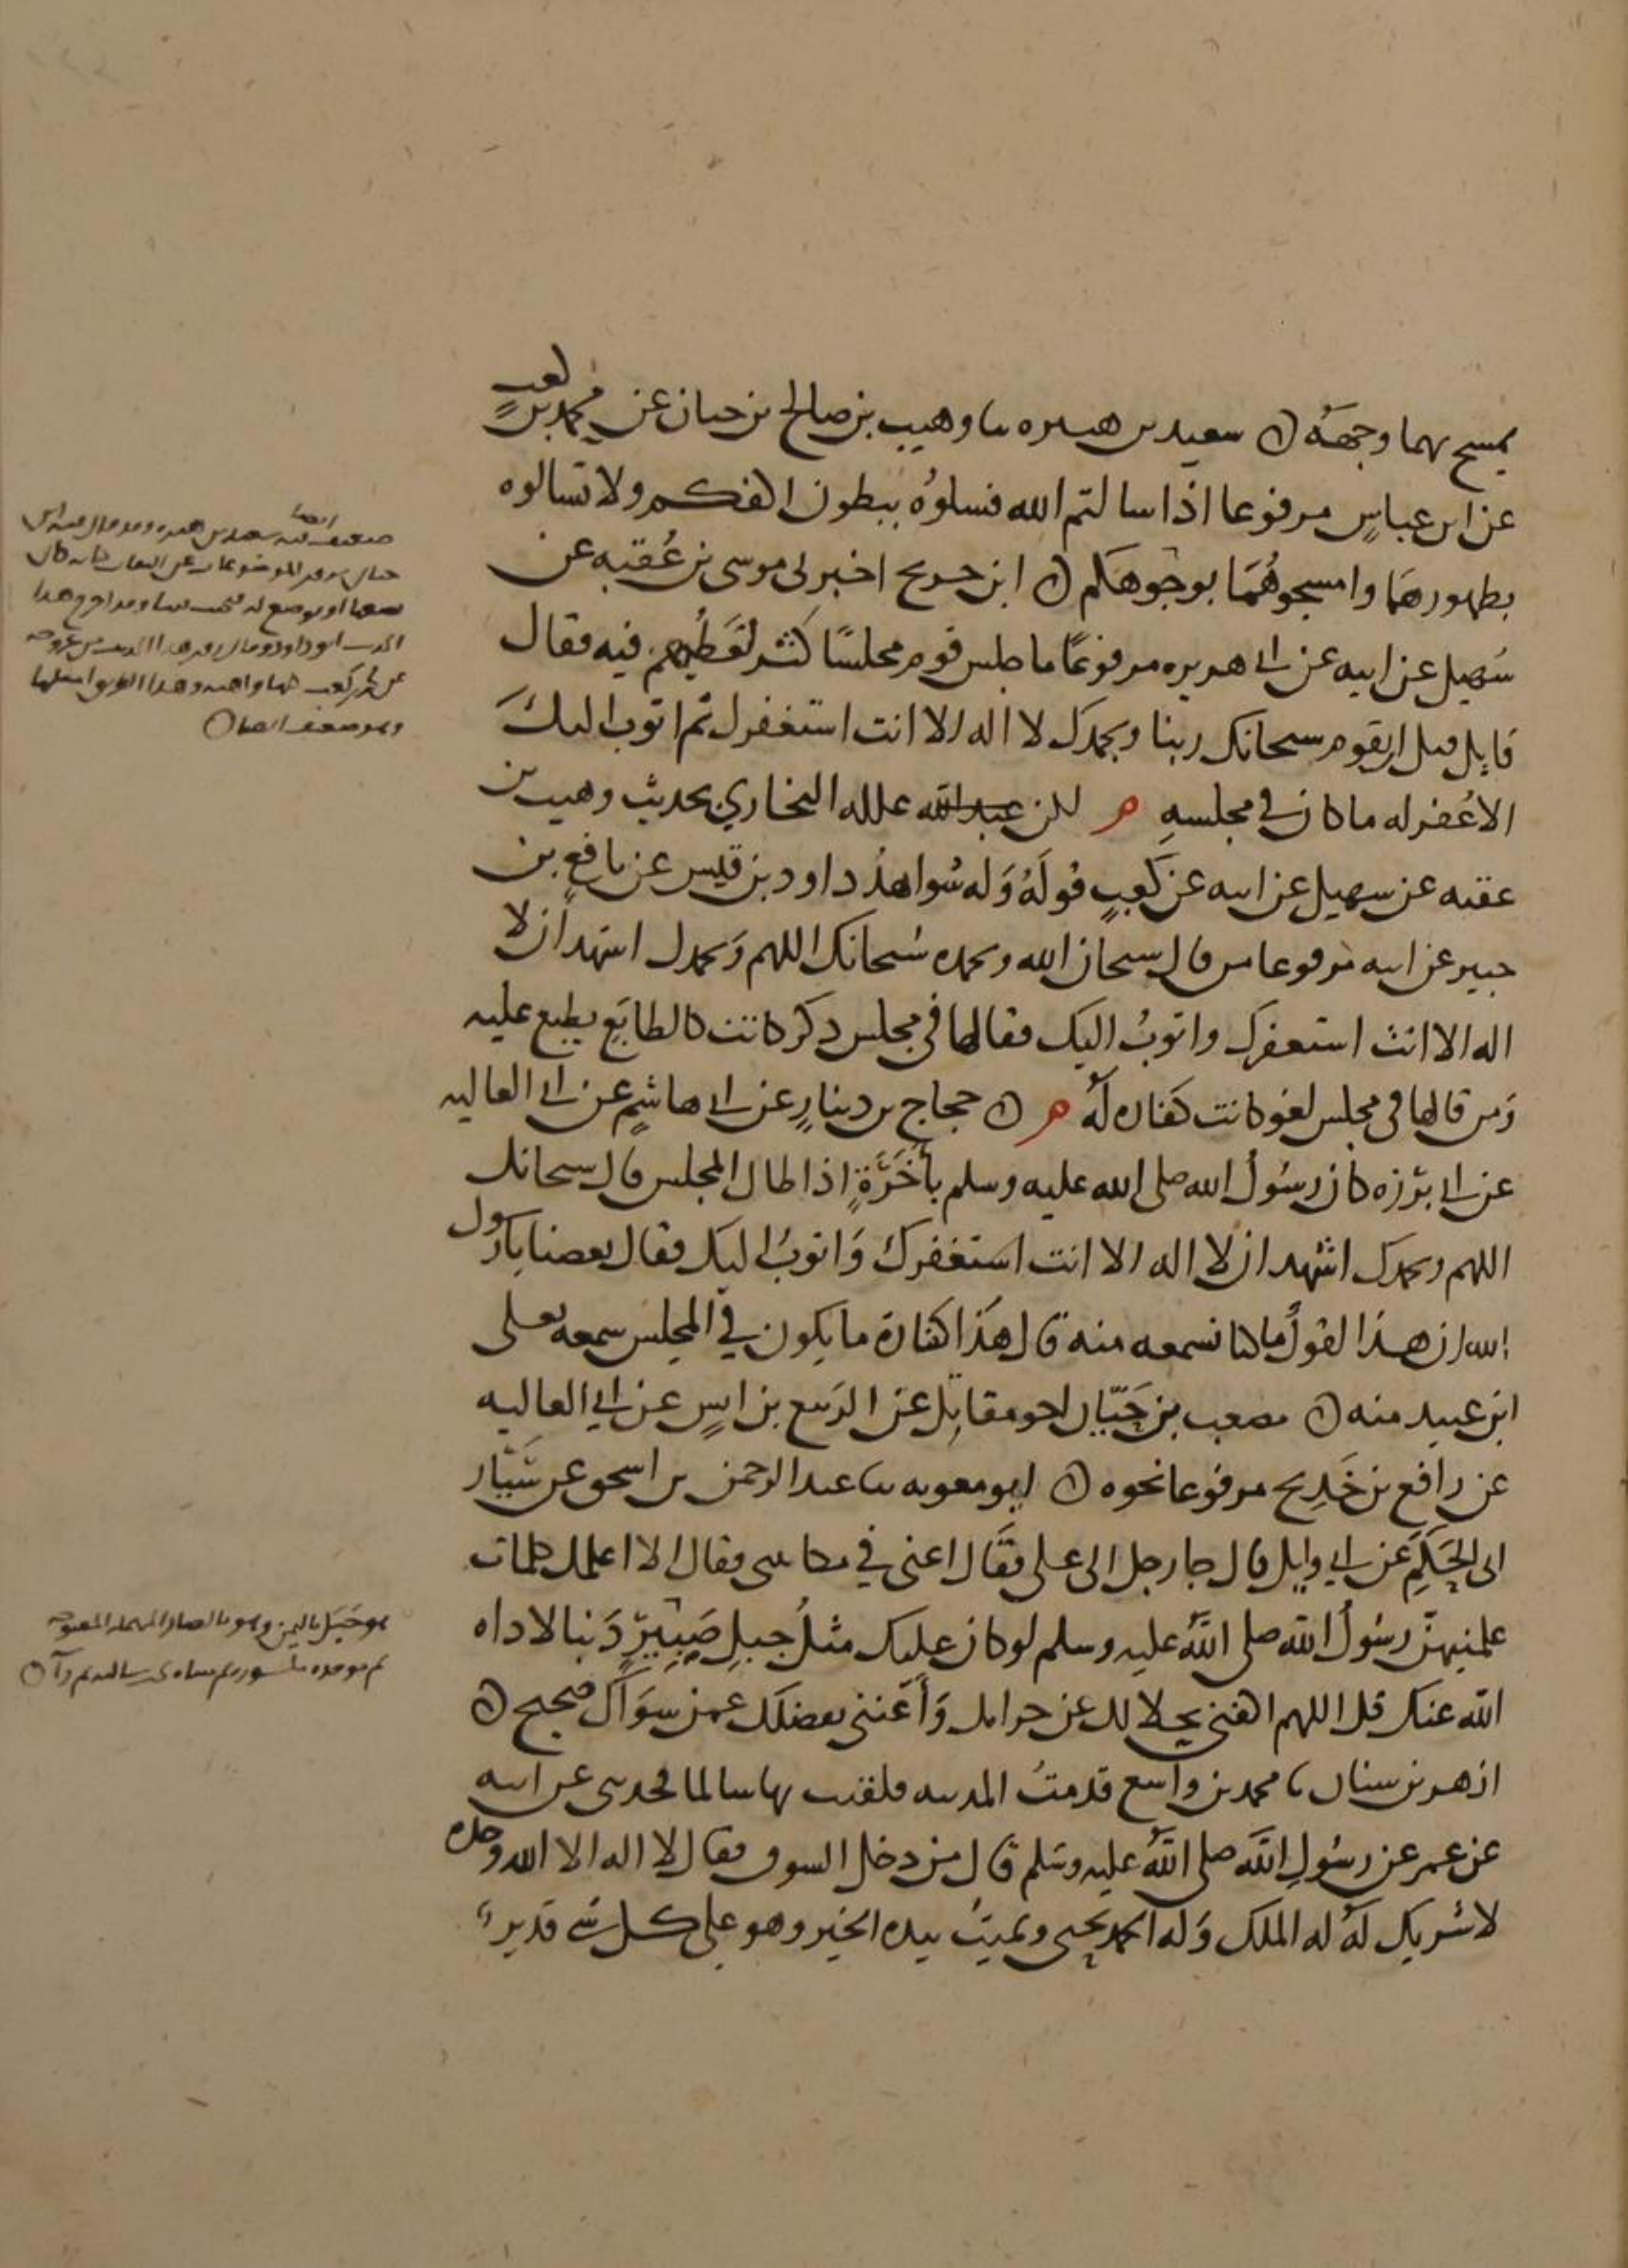 يمسح بهما وجهه ○ سعيد بن هبيره ثنا وهيب بن صالح بن حسان عن محمد بن كعب
عن ابن عباس مرفوعا اذا سالتم الله فسلوه ببطون اكفكم ولا تسالوه
بظهورهما وامسحوهما بوجوهكم ○ ابن جريج اخبرني موسى بن عقبه عن
سهيل عن ابيه عن ابي هريره مرفوعا ما جلس قوم مجلسا كثر لغطهم فيه فقال
قايل قبل ان يقوم سبحانك ربنا وبحمدك لا اله الا انت استغفرك ثم اتوب اليك
الا غفر له ما كان في مجلسه م لكن عبد الله علله البخاري بحديث وهيب بن
عقبه عن سهيل عن ابيه عن كعب قوله وله شواهد داود بن قيس عن نافع بن
جبير عن ابيه مرفوعا من قال سبحان الله وبحمده سبحانك اللهم وبحمدك اشهد ان لا
اله الا انت استغفرك واتوب اليك فقالها في مجلس ذكر كانت كالطابع يطبع عليه
ومن قالها في مجلس لغو كانت كفاره له م ○ حجاج بن دينار عن ابي هاشم عن ابي العاليه
عن ابي برزه كان رسول الله صلى الله عليه وسلم بأخرة اذا طال المجلس قال سبحانك
اللهم وبحمدك اشهد ان لا اله الا انت استغفرك واتوب اليك فقال بعضنا يا رسول
الله ان هذا القول ما كنا نسمعه منه قال هذا كفارة ما يكون في المجلس سمعه يعلى
ابن عبيد منه ○ مصعب بن حيان اخو مقاتل عن الربيع بن انس عن ابي العاليه
عن رافع بن خديج مرفوعا نحوه ○ ابو معويه ثنا عبد الرحمن بن اسحق عن سيار
ابي الحكم عن ابي وايل قال جا رجل الى علي فقال اعني في مكاتبتي فقال الا اعلمك كلمات
علمنيهن رسول الله صلى الله عليه وسلم لو كان عليك مثل جبل صبير دينا لاداه
الله عنك قل اللهم اكفني بحلالك عن حرامك وأغنني بفضلك عمن سواك صحيح ○
ازهر بن سنان نا محمد بن واسع قدمت المدينه فلقيت بها سالما فحدثني عن ابيه
عن عمر عن رسول الله صلى الله عليه وسلم قال من دخل السوق فقال لا اله الا الله وحده
لا شريك له له الملك وله الحمد يحيي ويميت بيده الخير وهو على كل شي قدير
ضعيف فيه سعيد بن هبيره وقد قال فيه ابن
حبان يروي الموضوعات عن الثقات كانه كان
يضعها او توضع له فيجيب فيها وقد اخرج هذا
الحديث ابو داود وقال روي هذا الحديث من غير وجه
عن محمد بن كعب كلها واهيه وهذا الطريق امثلها
وهو ضعيف ايضا ○
هو جبل باليمن وهو بالصاد المهمله المفتوحه
ثم موحده مكسوره ثم مثناه تحت ساكنه ثم را ○